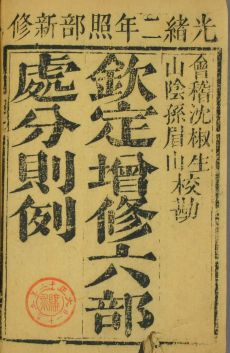 光緒二年照部新修
會稽沈椒生
山陰孫眉山校勘
欽定增修六部
處分則例